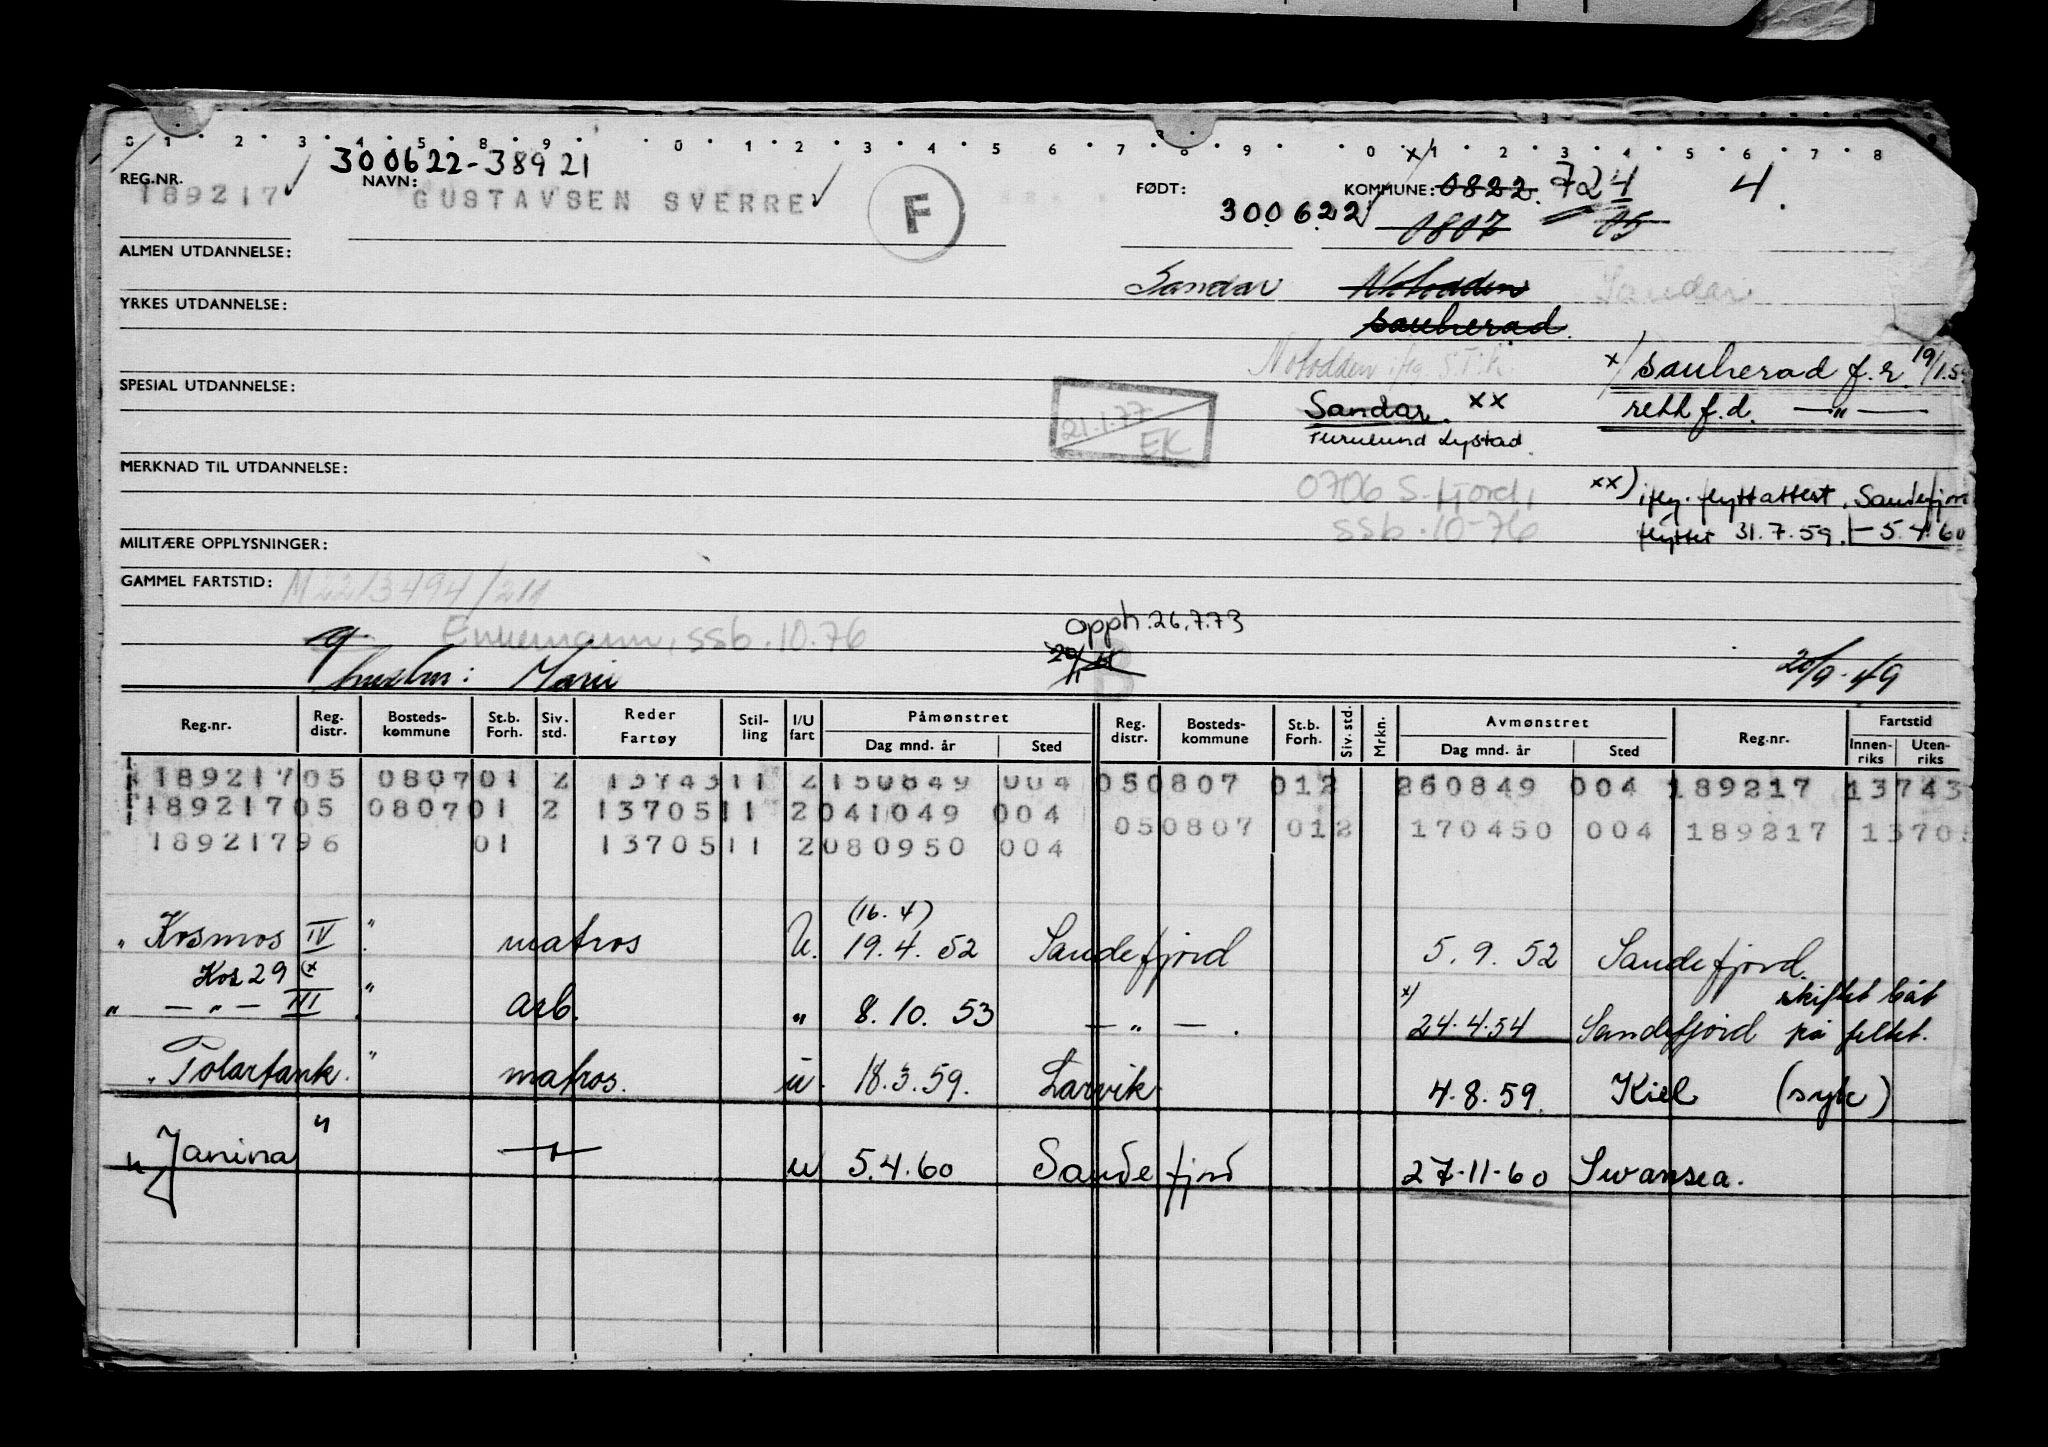 0 1 2 3 4 5 8 9 0 1 2 3 4 5 6 7 8 9 0 1 2 3 4 5 6 7 8
300622-38921
REG.NR. 189217 NAVN: GUSTAVSEN SVERRE F FØDT: 300622 KOMMUNE: 0822. 724 4.
0807 05
ALMEN UTDANNELSE:
Sandar Notodden Sandar
YRKES UTDANNELSE:
Sauherad.
Notodden iflg. S.T.K. x/ Sauherad f.r. 19/1.59
SPESIAL UTDANNELSE:
21.1.77 EK Sandar. xx retk f.d. — " —
Lystad.
MERKNAD TIL UTDANNELSE:
0706 S.fjord, xx) iflg. flyttattest. Sandefjord
ssb.10-76 flyttet 31.7.59. - 5.4.60
MILITÆRE OPPLYSNINGER:
GAMMEL FARTSTID: M2213494/211
g Enkemann, ssb.10.76 opph. 26.7.73
hustru: Marie B 20/9-49
Reg.nr. Reg. distr. Bosteds- kommune St.b. Forh. Siv. std. Reder Fartøy Stil- ling I/U fart Påmønstret Dag mnd. år Sted Reg. distr. Bosteds- kommune St.b. Forh. Siv. std. Mrkn. Avmønstret Dag mnd. år Sted Reg.nr. Fartstid Innen- riks Uten- riks
189217 05 0807 01 2 13743 11 2 150849 004 05 0807 012 260849 004 189217 13743
189217 05 0807 01 2 13705 11 2 041049 004 05 0807 012 170450 004 189217 13705
189217 96 01 13705 11 2 080950 004
(16.4)
" Kosmos IV " matros U. 19.4.52 Sandefjord 5.9.52 Sandefjord.
Kos 29 (x skiftet båt
" — " — III " arb. " 8.10.53 — " — . x) 24.4.54 Sandefjord på feltet.
" Polartank. " matros. u. 18.3.59. Larvik 4.8.59. Kiel (syk)
" Janina " — " — u 5.4.60 Sandefjord 27-11-60 Swansea.